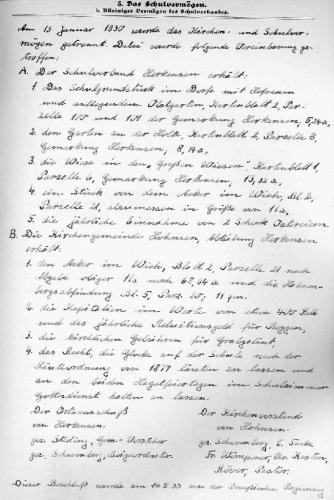 5. Das Schulvermögen.
b. Alleiniges Vermögen des Schulverbandes.
Am 13. Januar 1930 wurde das Kirchen- und Schulver-
mögen getrennt. Dabei wurde folgende Vereinbarung ge-
troffen:
A. Der Schulverband Herkensen erhält:
1. Das Schulgrundstück im Dorfe mit Hofraum
und anliegendem Obstgarten, Kartenblatt 2, Par-
zelle 100 und 101 der Gemarkung Herkensen,
2. den Garten an der Kartenblatt 2, Parzelle 8,
Gemarkung Herkensen,
3. die Wiese in den "Großen Wiesen" Kartenblatt 1,
Parzelle 6, Gemarkung Herkensen,
4. ein Stück von dem Acker im Bl. 2,
Parzelle 21, abzumessen in Größe von 11 a,
5. die jährliche Einnahme von 2 Schock Ostereiern.
B. Die Kirchengemeinde Hohnsen, Abteilung Herkensen
erhält:
1. den Acker im Blatt 2, Parzelle 21 nach
Abgabe obiger 11 a noch und die
Bl. 5, Parz.
2. die Kapitalien im Werte von etwa 400 RM
und das jährliche für Roggen,
3. die kirchlichen Gebühren für
4. das Recht, die Glocke auf der Schule nach der
Läutordnung von 1877 läuten zu lassen und
an den beiden Hagelfeiertagen im Schulzimmer
Gottesdienst halten zu lassen.
Der Ortsausschuß
von Herkensen.
gez. Gem.-Vorsteher
gez. Scharnberg, Beigeordneter.
Der Kirchenvorstand
von Hohnsen.
gez. Scharnberg,
Fr. Wömpner, Chr. Kasten,
Pastor.
Dieser Beschluß wurde am von der Preußischen Regierung